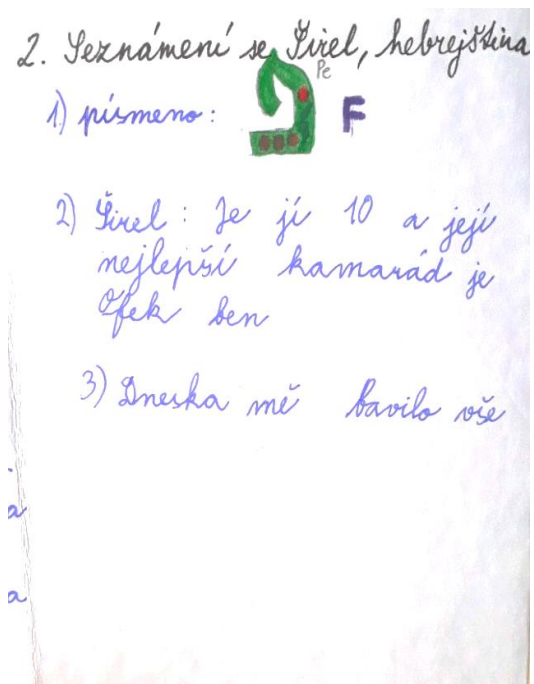 2. Seznámení se Širel, hebrejština
Pe
1) písmeno: פ F
2) Širel: Je jí 10 a její
nejlepší kamarád je
Ófek ben
3) Dneska mě bavilo vše
a
a